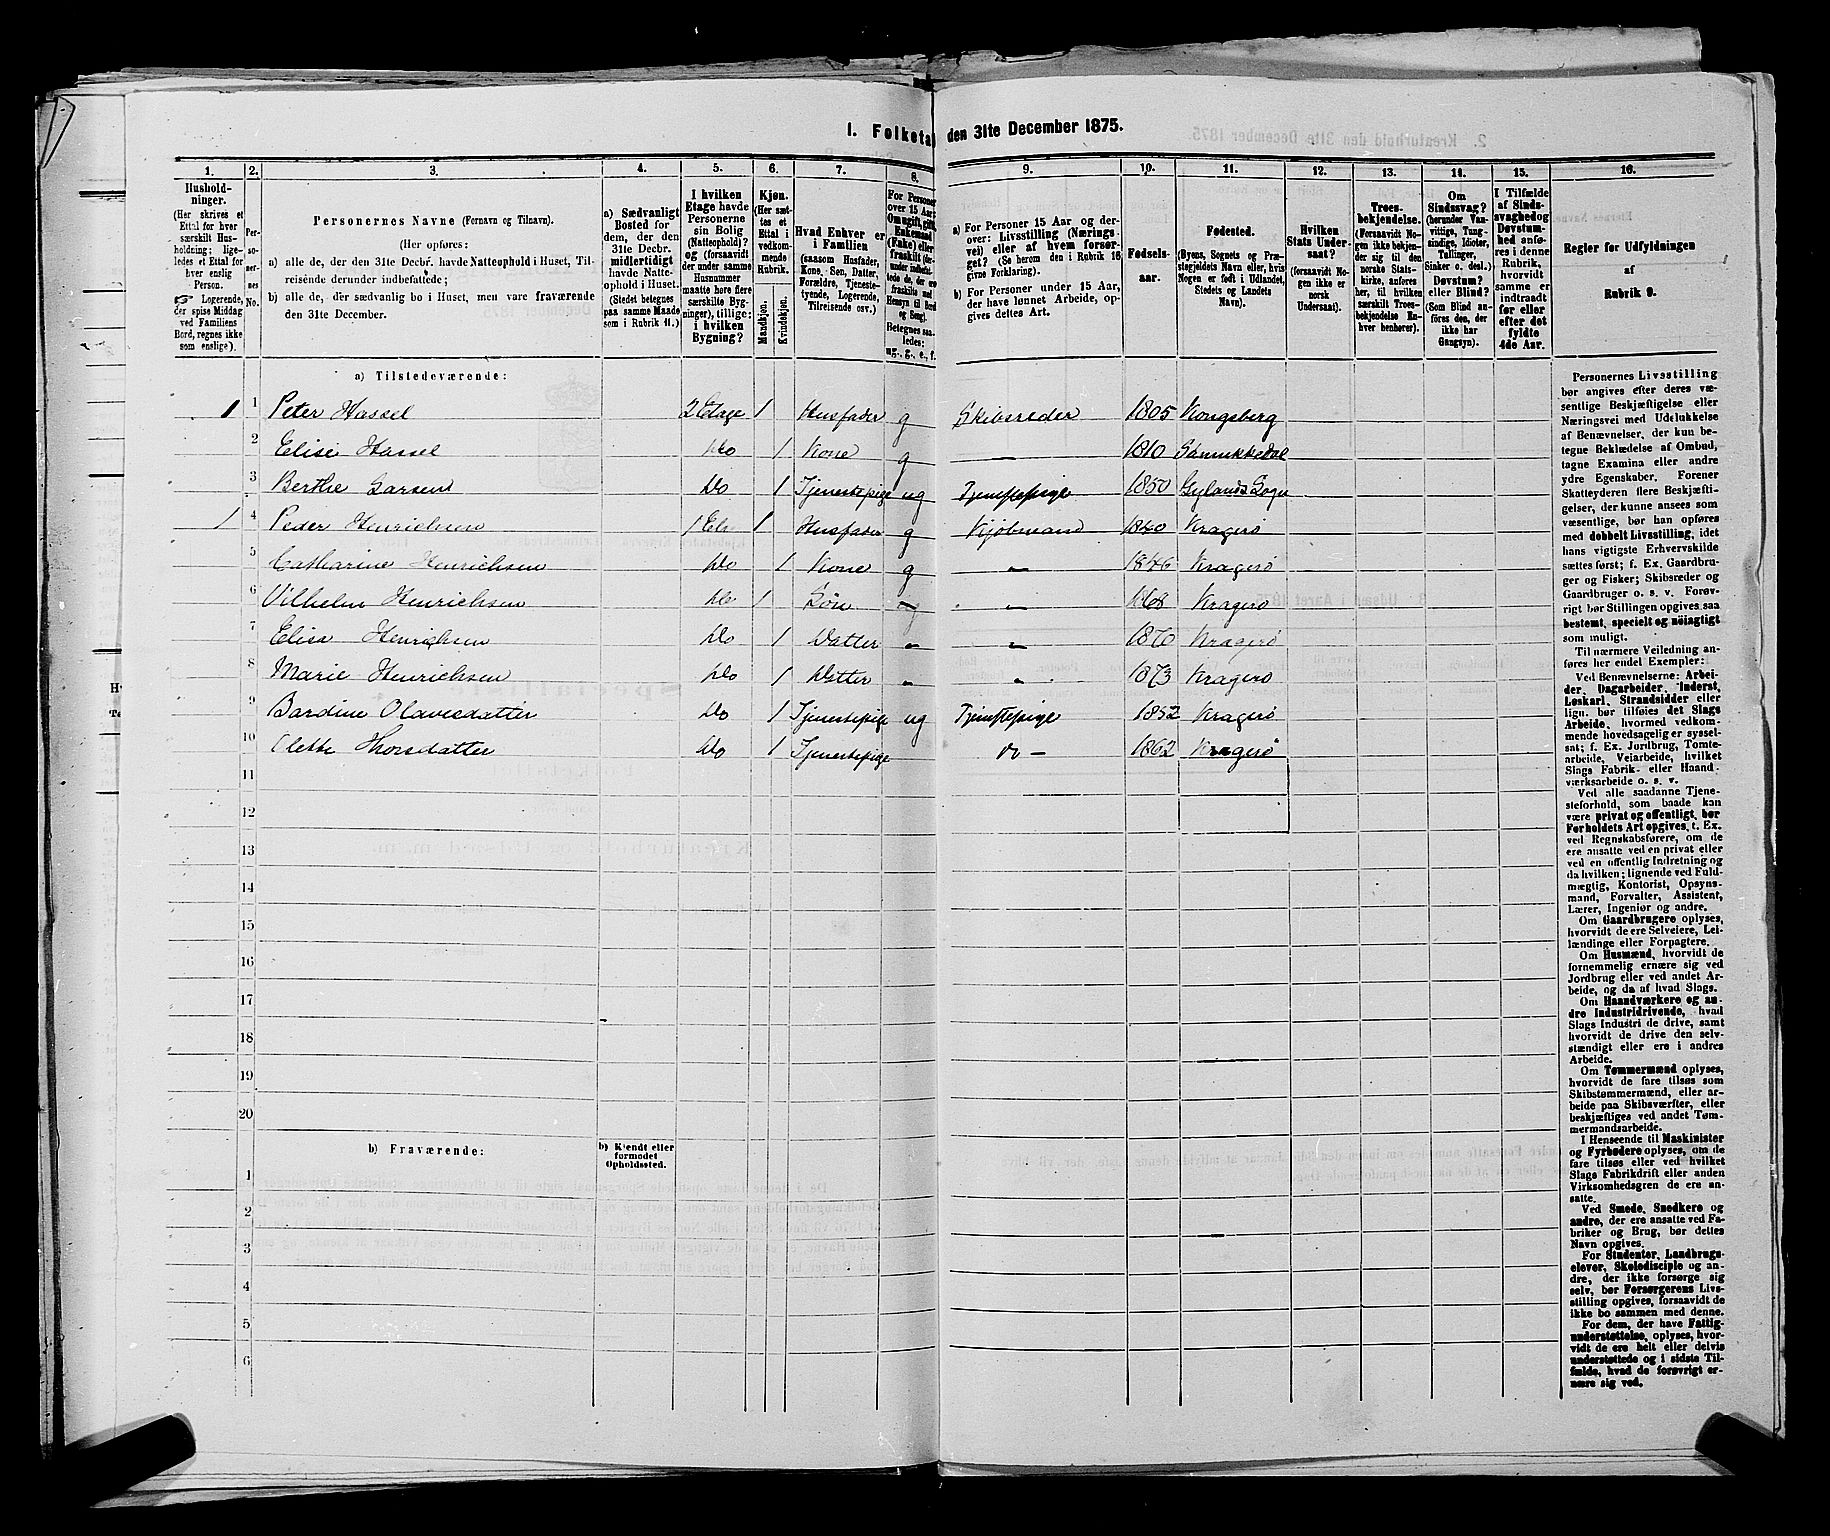 1. Folketal den 31te December 1875.
1. 2. 3. 4. 5. 6. 7. 8. 9. 10. 11. 12. 13. 14. 15. 16.
Husholdninger.
(Her skrives et
Ettal for hver
særskilt Husholdning;
ligeledes
et Ettal for
hver enslig
Person.
☞ Logerende,
der spise Middag
ved Familiens
Bord, regnes ikke
som enslige).
Personernes
No.
Personernes Navne (Fornavn og Tilnavn).
(Her opføres:
a) alle de, der den 31te Decbr. havde Natteophold i Huset, Tilreisende
derunder indbefattede;
b) alle de, der sædvanlig bo i Huset, men vare fraværende
den 31te December.
a) Sædvanligt
Bosted for
dem, der den
31te Decbr.
midlertidigt
havde Natteophold
i Huset.
(Stedet betegnes
paa samme Maade
som i Rubrik 11.)
I hvilken
Etage havde
Personerne
sin Bolig
(Natteophold)?
og (forsaavidt
der under samme
Husnummer
maatte høre flere
særskilte Bygninger),
tillige:
i hvilken
Bygning?
Kjøn.
(Her sættes
et
Ettal i
vedkommende
Rubrik.
Mandkjøn.
Kvindekjøn.
Hvad Enhver er
i Familien
(saasom Husfader,
Kone, Søn, Datter,
Forældre, Tjenestetyende,
Logerende,
Tilreisende osv.)
For Personer
over 15 Aar:
Om ugift, gift,
Enkemand
(Enke) eller
fraskilt
Betegnes saaledes:
ug., g., e., f.
a) For Personer 15 Aar og derover:
Livsstilling (Næringsvei)
eller af hvem forsørget?
(Se herom den i Rubrik 16
givne Forklaring).
b) For Personer under 15 Aar,
der have lønnet Arbeide, opgives
dettes Art.
Fødselsaar.
Fødested.
(Byens, Sognets og Præstegjeldets
Navn eller, hvis
Nogen er født i Udlandet,
Stedets og Landets
Navn).
Hvilken
Stats Undersaat?
(forsaavidt Nogen
ikke er
norsk
Undersaat).
Troesbekjendelse.
(Forsaavidt Nogen
ikke bekjender
sig til den
norske Statskirke,
anføres
her, til hvilken
særskilt Troesbekjendelse
Enhver
henhører).
Om
Sindssvag?
(herunder Vanvittige,
Tungsindige,
Idioter,
Tullinger,
Sinker o. desl.)
Døvstum?
eller Blind?
(Som Blind anføres
den, der
ikke har
Gangsyn).
I Tilfælde
af Sindssvaghed
og
Døvstumhed
anføres
i denne
Rubrik,
hvorvidt
samme er
indtraadt
før eller
efter det
fyldte
4de Aar.
Regler for Udfyldningen
af
Rubrik 9.
a) Tilstedeværende:
1 1 Peter Hassel 2 Etage 1 Husfader g Skibsreder 1805 Kongsberg
2 Elise Hassel Do 1 Kone g — 1810 Sannikedal
3 Berthe Larsen Do 1 Tjenestepige ug Tjenestepige 1850 Gylands Sogn
1 4 Peder Henrichsen 1 Et 1 Husfader g Kjøbmand 1840 Kragerø
5 Catharine Henrichsen Do 1 Kone g — 1846 Kragerø
6 Vilhelm Henrichsen Do 1 Søn — — 1868 Kragerø
7 Elisa Henrichsen Do 1 Datter — — 1870 Kragerø
8 Marie Henrichsen Do 1 Datter — — 1873 Kragerø
9 Bardine Olavesdatter Do 1 Tjenestepige ug Tjenestepige 1852 Kragerø
10 Olette Thorsdatter Do 1 Tjenestepige do — 1862 Kragerø
11
12
13
14
15
16
17
18
19
20
b) Fraværende:
b) Kjendt eller
formodet
Opholdssted.
1
2
3
4
5
6
Personernes Livsstilling
bør angives efter deres væsentlige
Beskjæftigelse eller
Næringsvei med Udelukkelse
af Benævnelser, der kun betegne
Beklædelse af Ombud,
tagne Examina eller andre
ydre Egenskaber. Forener
Skatteyderen flere Beskjæftigelser,
der kunne ansees som
væsentlige, bør han opføres
med dobbelt Livsstilling, idet
hans vigtigste Erhvervskilde
sættes først; f. Ex. Gaardbruger
og Fisker; Skibsreder og
Gaardbruger o. s. v. Forøvrigt
bør Stillingen opgives saa
bestemt, specielt og nøiagtigt
som muligt.
Til nærmere Veiledning anføres
her endel Exempler:
Ved Benævnelserne: Arbeider,
Dagarbeider, Inderst,
Løskarl, Strandsidder eller
lign. bør tilføies det Slags
Arbeide, hvormed vedkommende
hovedsagelig er sysselsat;
f. Ex. Jordbrug, Tomtearbeide,
Veiarbeide, hvilket
Slags Fabrik- eller Haandværksarbeide
o. s. v.
Ved alle saadanne Tjenesteforhold,
som baade kan
være privat og offentligt, bør
Forholdets Art opgives, t. Ex.
ved Regnskabsførere, om de
ere ansatte ved en privat eller
ved en offentlig Indretning og
da hvilken; lignende ved Fuldmægtig,
Kontorist, Opsynsmand,
Forvalter, Assistent,
Lærer, Ingeniør og andre.
Om Gaardbrugere oplyses,
hvorvidt de ere Selveiere, Leilændinge
eller Forpagtere.
Om Husmænd, hvorvidt de
fornemmelig ernære sig ved
Jordbrug eller ved andet Arbeide,
og da af hvad Slags.
Om Haandværkere og andre
Industridrivende, hvad
Slags Industri de drive, samt
hvorvidt de drive den selvstændigt
eller ere i andres
Arbeide.
Om Tømmermænd oplyses,
hvorvidt de fare tilsøs som
Skibstømmermænd, eller arbeide
paa Skibsværfter, eller
beskjæftiges ved andet Tømmermandsarbeide.
I Henseende til Maskinister
og Fyrbødere oplyses, om de
fare tilsøs eller ved hvilket
Slags Fabrikdrift eller anden
Virksomhedsgren de ere ansatte.
Ved Smede, Snedkere og
andre, der ere ansatte ved Fabriker
og Brug, bør dettes
Navn opgives.
For Studenter, Landbrugselever,
Skoledisciple og andre,
der ikke forsørge sig
selv, bør Forsørgerens Livsstilling
opgives, forsaavidt de
ikke bo sammen med denne.
For dem, der have Fattigunderstøttelse,
oplyses, hvorvidt
de ere helt eller delvis
understøttede og i sidste Tilfælde,
hvad de forøvrigt ernære
sig ved.